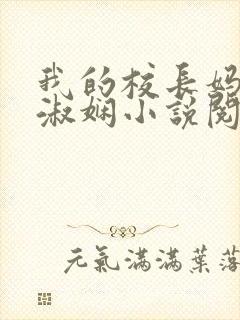 我的校長媽
淑嫻小說閱
元氣滿滿葉落